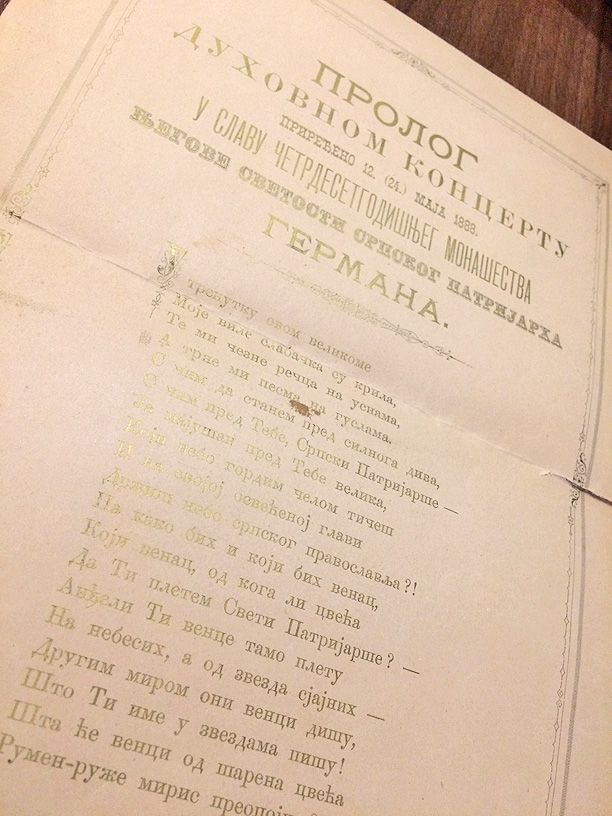 ПРОЛОГ
ДУХОВНОМ КОНЦЕРТУ
ПРИРЕЂЕНО 12. (24.) МАЈА 1888.
У СЛАВУ ЧЕТРДЕСЕТГОДИШЊЕГ МОНАШЕСТВА
ЊЕГОВЕ СВЕТОСТИ СРПСКОГ ПАТРИЈАРХА
ГЕРМАНА.
У тренутку овом великоме
Моје виле слабачка су крила,
Те ми чезне речца на уснама,
А трне ми песма на гуслама.
С чим да станем пред силнога дива,
С чим пред Тебе, Српски Патријарше —
Је мајушан пред Тебе велика,
Који небо гордим челом тичеш
И на својој освећеној глави
Држиш небо српског православља?!
Па како бих и који бих венац,
Који венац, од кога ли цвећа
Да Ти плетем Свети Патријарше? —
Анђели Ти венце тамо плету
На небесих, а од звезда сјајних —
Другим миром они венци дишу,
Што Ти име у звездама пишу!
Шта ће венци од шарена цвећа
Румен-руже мирис